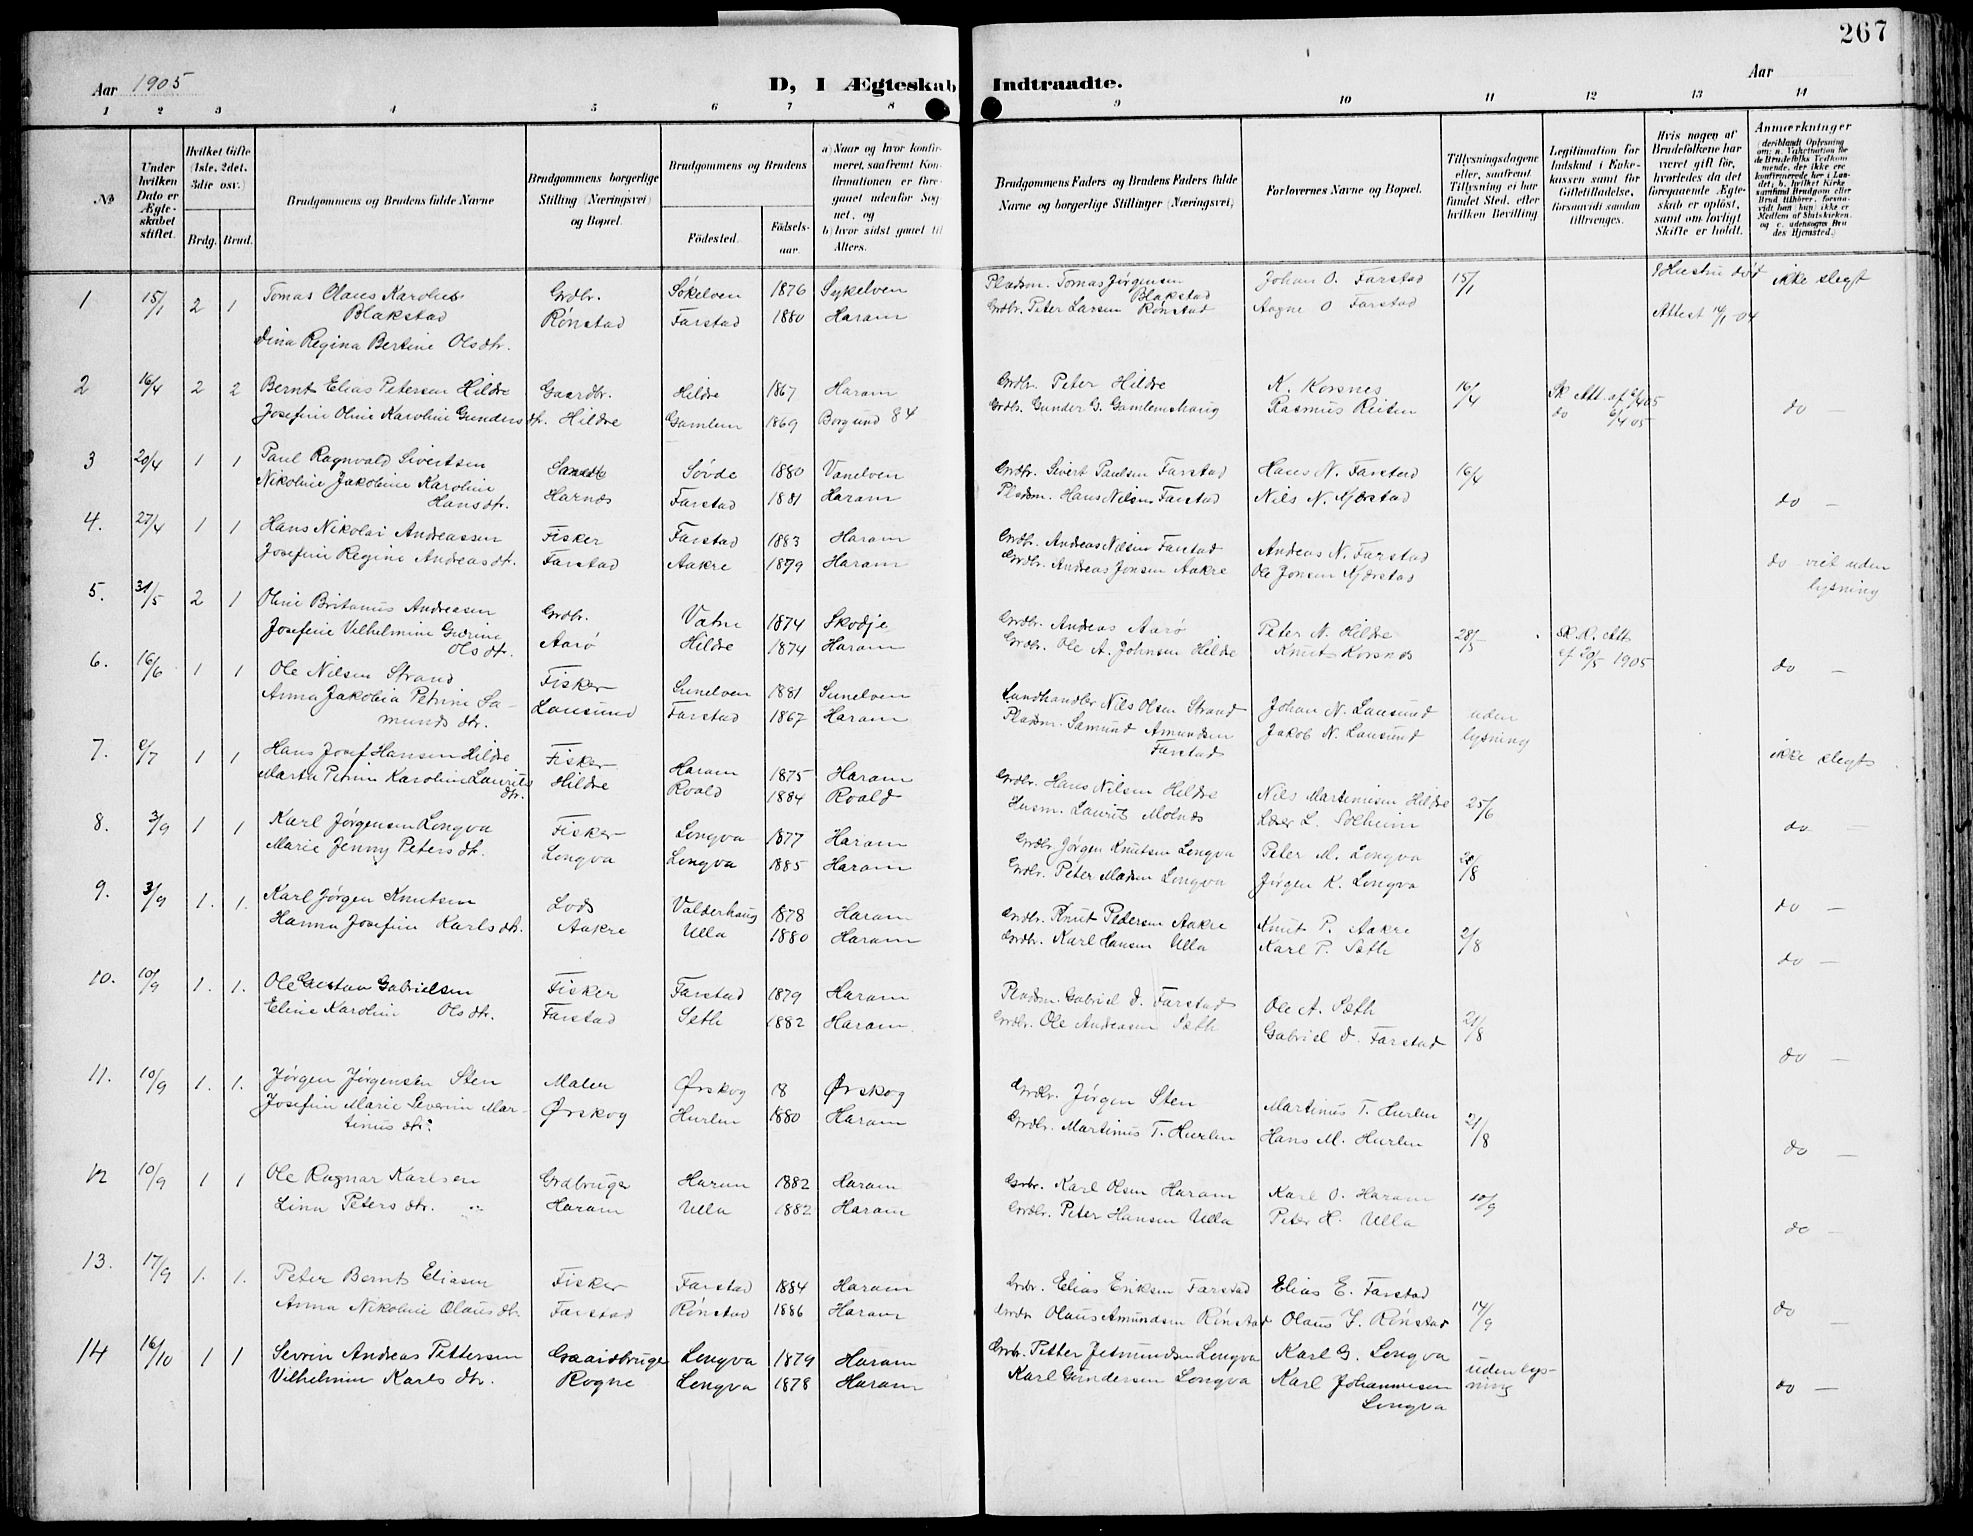 267
Aar 1905
D, I Ægteskab Indtraadte.
Aar
1 2 3 4 5 6 7 8 9 10 11 12 13 14
No
Under hvilken Dato er Ægteskabet stiftet.
Hvilket Gifte (1ste, 2det, 3die osv.)
Brdg. Brud.
Brudgommens og Brudens fulde Navne
Brudgommens borgerlige Stilling (Næringsvei) og Bopæl.
Brudgommens og Brudens
Födested. Födselsaar.
a) Naar og hvor konfirmeret, saafremt Konfirmationen er foregaaet udenfor Sognet, og
b) hvor sidst gaaet til Alters.
Brudgommens Faders og Brudens Faders fulde Navne og borgerlige Stillinger (Næringsvei)
Forlovernes Navne og Bopæl.
Tillysningsdagene eller, saafremt Tillysning ei har fundet Sted, efter hvilken Bevilling
Legitimation for Indskud i Enkekassen samt for Giftetilladelse, forsaavidt saadan tiltrænges.
Hvis nogen af Brudefolkene har været gift før, hvorledes da det foregaaende Ægteskab er opløst, samt om lovligt Skifte er holdt.
Anmærkninger
1 15/1 2 1 Tomas Olaus Karolius Grdbr. Søkelven 1876 Sykelven Pladsm. Tomas Jørgensen Johan O. Farstad 15/1 Hustru død ikke slegt
Blakstad Rönstad Farstad 1880 Haram Blakstad
Grdbr. Peter Larsen Rønstad Aagne O Farstad Attest 14/1 04
Dina Regina Bertine Olsdtr.
2 16/4 2 2 Bernt Elias Petersen Hildre Gaardbr. Hildre 1867 Haram Grdbr. Peter Hildre K. Korsnes 16/4 Sk. Att. af 6/4 05
Josefine Oline Karoline Gundersdtr. Hildre Gamlem 1869 Borgund 84 Grdbr. Gunder G. Gamlemshaug Rasmus Reiten do 6/4 05 do —
3 20/4 1 1 Paul Ragnvald Sivertsen Søvde 1880 Vanelven Grdbr. Sivert Paulsen Farstad Hans N. Farstad 16/4
Nikoline Jakobine Karoline Harnes Farstad 1881 Haram Pladsm. Hans Nilsen Farstad Nils N. Kjærstad do —
Hansdtr.
4. 27/4 1 1 Hans Nikolai Andreassen Fisker Farstad 1883 Haram Grdbr. Andreas Nilsen Farstad Andreas N. Farstad
Josefine Regine Andreasdtr. Farstad Aakre 1879 Haram Grdbr. Andreas Jonsen Aakre Ole Jonsen Kjærstad do viet uden
lysning
5. 31/5 2 1 Oline Britanus Andreasen Grdbr. Vatne 1874 Skodje Grdbr. Andreas Aarø Peter N. Hildre 28/5 Sk. Att.
Josefine Vilhelmine Gurine Aarø Hildre 1874 Haram Grdbr. Ole A. Johnsen Hildre Knut Korsnes af 20/5 1905 do —
Olsdtr.
6. 16/6 1 1 Ole Nilsen Strand Fisker Sunelven 1881 Sunelven Landhandler Nils Olsen Strand Johan N. Lausund uden
Anna Jakobia Petrine Sa- Lausund Farstad 1867 Haram Pladsm. Samund Amundsen Jakob N. Lausund lysning
munds dtr. Farstad ikke slegt
7. 2/7 1 1 Hans Josef Hansen Hildre Fisker Haram 1875 Haram Grdbr. Hans Nilsen Hildre Nils Martinusen Hildre 25/6
Karoline Laurits Hildre Roald 1884 Roald Husm. Laurits Molnes L. Solheim do —
dtr.
8. 3/9 1 1 Karl Jørgensen Longva Fisker Longva 1877 Haram Grdbr. Jørgen Knutsen Longva Peter M. Longva 20/8
Marie Jenny Petersdtr. Longva Longva 1885 Haram Grdbr. Peter Madsen Longva Jørgen K. Longva do —
9. 3/9 1. 1. Karl Jørgen Knutsen Lods Valderhaug 1878 Haram Grdbr. Knut Pedersen Aakre Knut P. Aakre 2/8
Hanna Josefine Karlsdtr. Aakre Ulla 1880 Haram Grdbr. Karl Hansen Ulla Karl P. Sæth do —
10. 10/9 1. 1. Ole Gustav Gabrielsen Fisker Farstad 1879 Haram Pladsm. Gabriel D. Farstad Ole A. Sæth 21/8
Eline Karoline Olsdtr. Farstad Sæth 1882 Haram Grdbr. Ole Andreasen Sæth Gabriel D. Farstad do —
11. 10/9 1. 1. Jørgen Jørgensen Sten Maler Ørskog 18 Ørskog Grdbr. Jørgen Sten Martinus T. Hurlen 21/8
Josefine Marie Severin Mar- Ørskog Hurlen 1880 Haram Grdbr. Martinus T. Hurlen Hans M. Hurlen do —
tinus dtr.
12 10/9 1 1 Ole Ragnar Karlsen Grdbruger Haram 1882 Haram Grbr. Karl Olsen Haram Karl O. Haram 10/9
Lina Petersdtr. Haram Ulla 1882 Haram Grdbr. Peter Hansen Ulla Peter H. Ulla do —
13. 17/9 1. 1. Peter Bernt Eliasen Fisker Farstad 1884 Haram Grdbr. Elias Eriksen Farstad Elias E. Farstad 17/9
Anna Nikoline Olausdtr. Farstad Rønstad 1886 Haram Grdbr Olaus Amundsen Rønstad Olaus J. Rønstad do —
14 16/10 1 1 Sevrin Andreas Pettersen Gaardbruger Longva 1879 Haram Grdbr. Petter Jetmundsen Longva Karl G. Longva uden lys-
Vilhelmine Karlsdtr. Rogne Longva 1878 Haram Karl Gundersen Longva Karl Johannesen ning do —
Longva